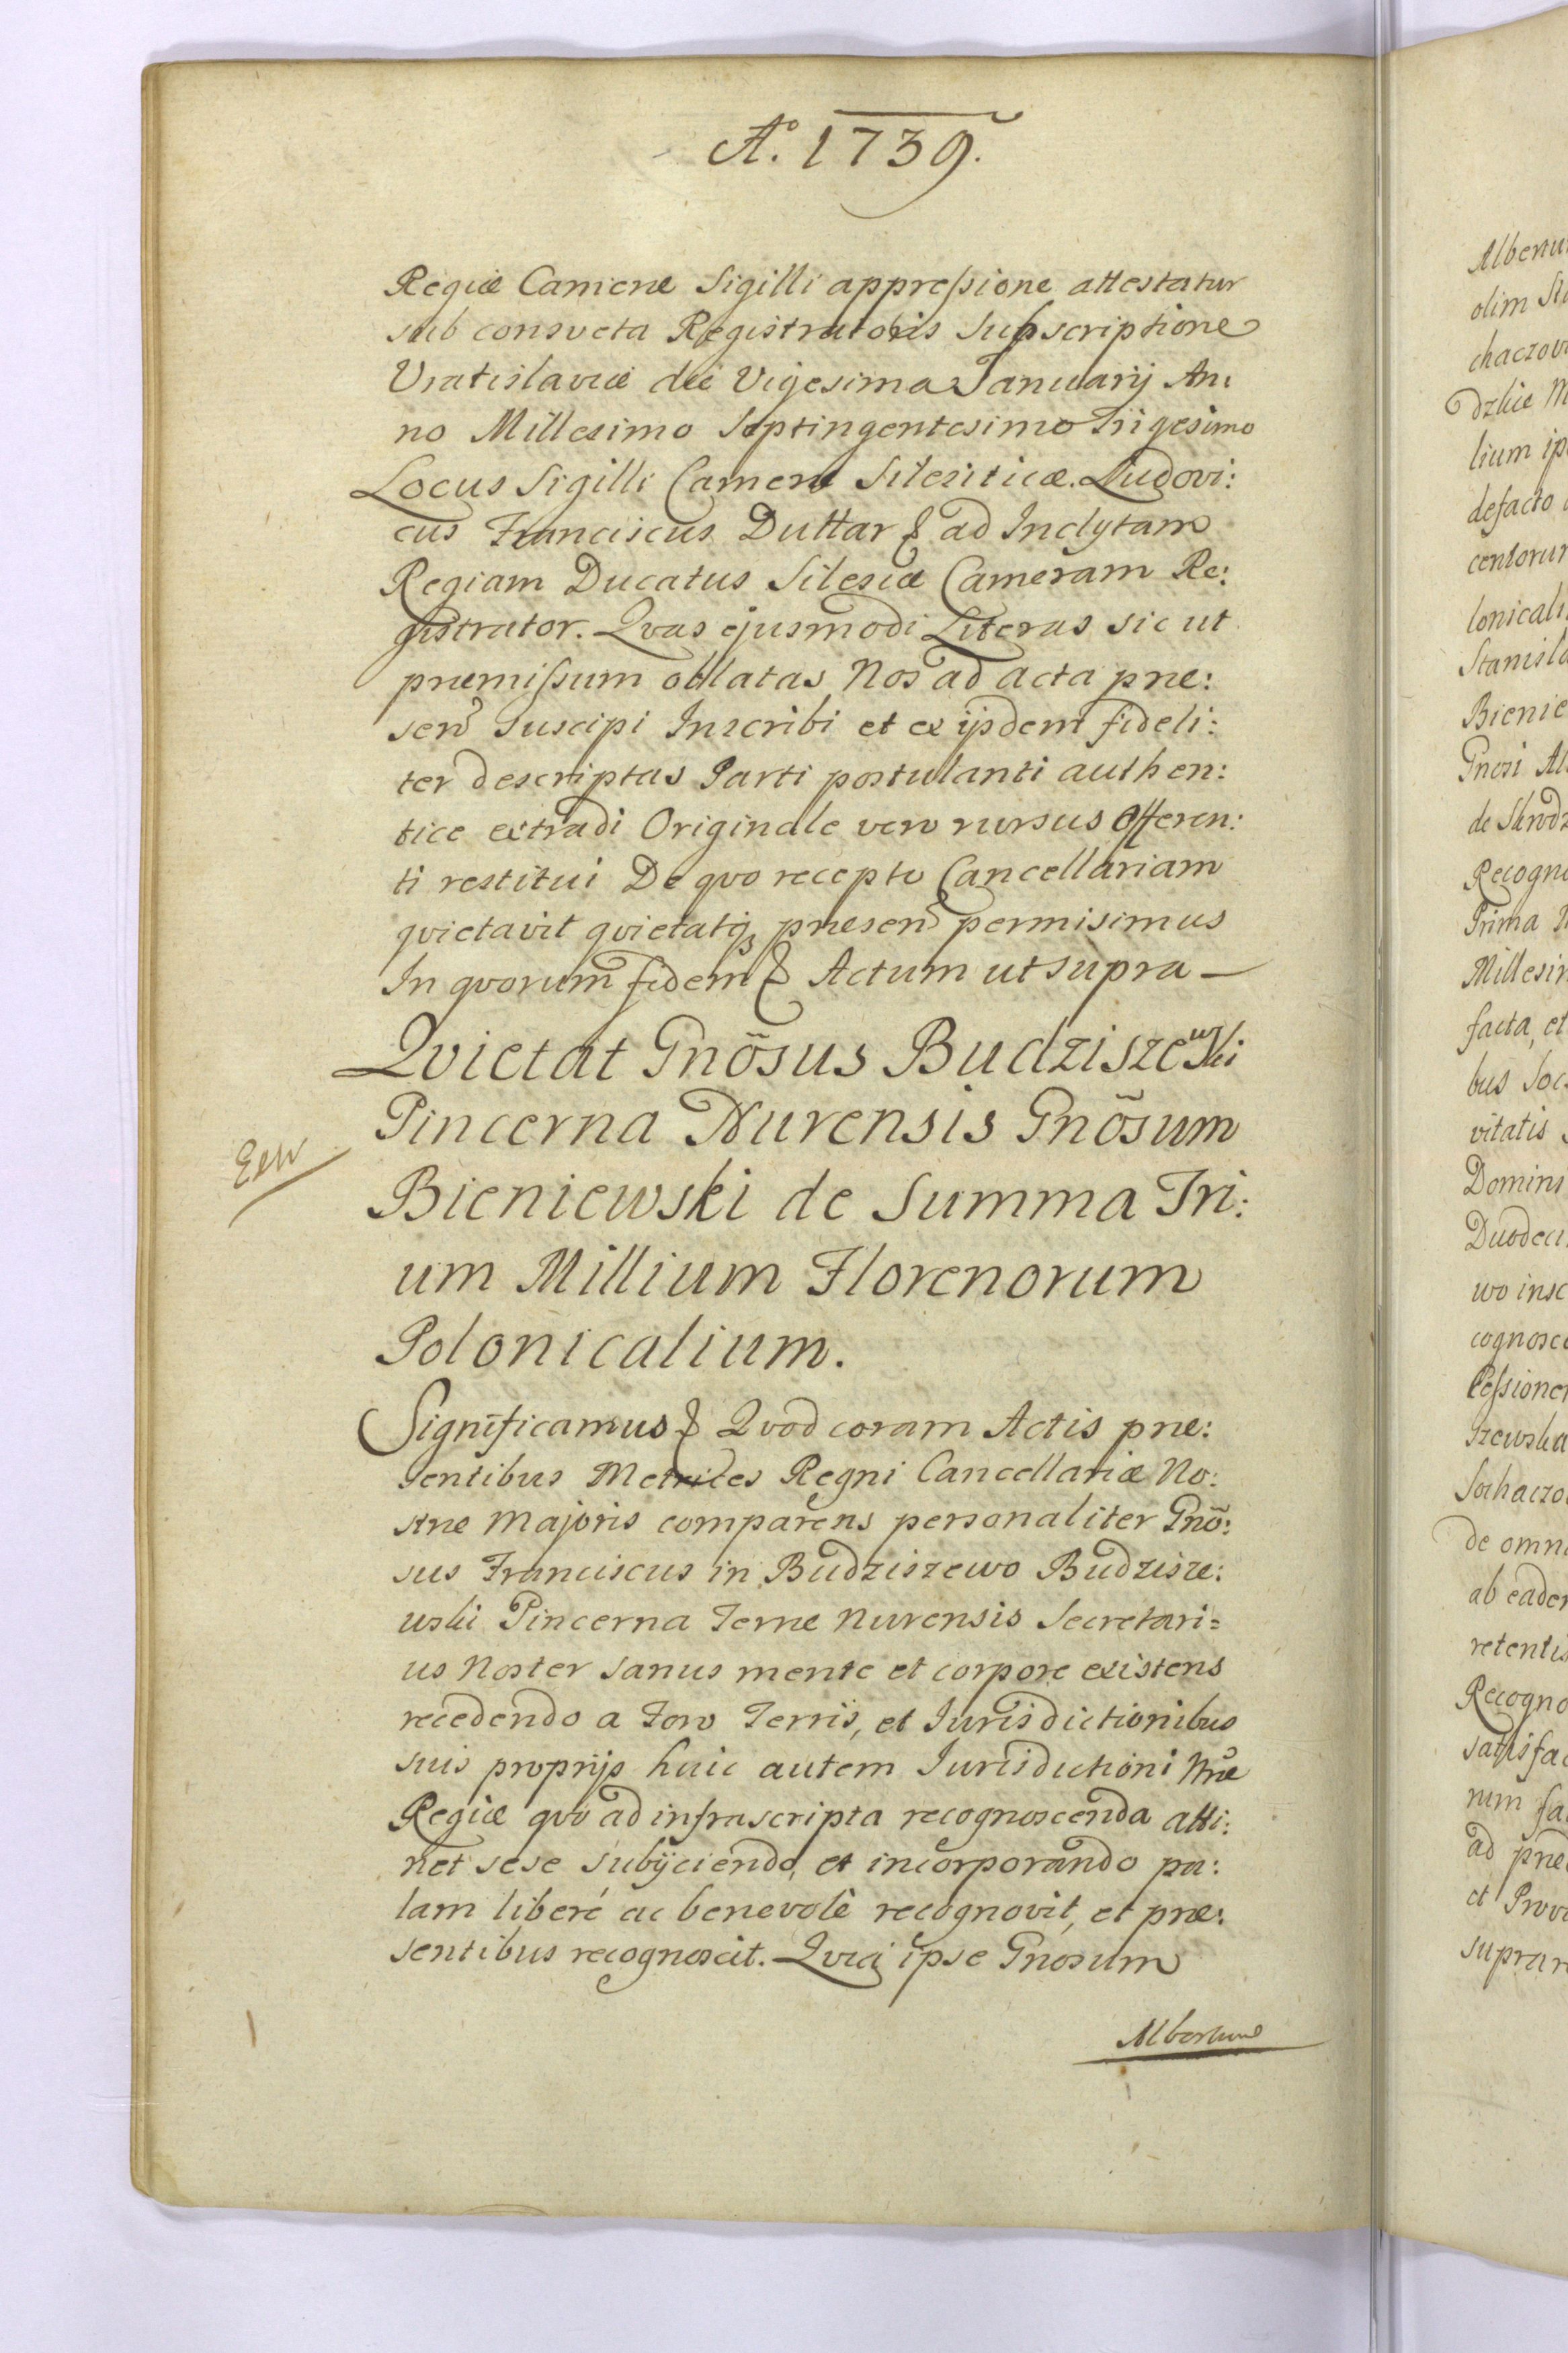 Aº. 1739.
Regiæ Cameræ Sigilli appressione attestatur
sub consveta Registratoris Subscriptione
Vratislaviæ die Vigesima Januarij An:
no Millesimo Septingentesimo Trigesimo
Locus Sigilli Cameræ Silesiticæ. Ludovi:
cus Franciscus Duttar & ad Inclytam
Regiam Ducatus Silesiæ Cameram Re:
gistrator. Qvas ejusmodi Literas sic ut
præmissum oblatas Nos ad acta præ:
sen̄ suscipi Inscribi et ex ijsdem fideli:
ter descriptas Parti postulanti authen:
tice extradi Originale vero rursus Offeren:
ti restitui De qvo recepto Cancellariam
qvietavit qvietatq₃ præsen̄ permisimus
In qvorum fidem & Actum ut supra —
Qvietat Gnõsus Budziszewski
Pincerna Nurensis Gnõsum
Bieniewski de Summa Tri:
um Millium Florenorum
Polonicalium.
Significamus & Qvod coram Actis præ:
sentibus Metrices Regni Cancellariæ No:
stræ Majoris comparens personaliter Gnõ:
sus Franciscus in Budziszewo Budzisze:
wski Pincerna Terræ Nurensis Secretari=
us Noster sanus mente et corpore existens
recedendo a Foro Terris, et Jurisdictionibus
suis proprijs huic autem Jurisdictioni Nræ
Regiæ qvo ad infrascripta recognoscenda atti:
net sese subijciendo, et incorporando pa:
lam liberé ac benevolè recognovit, et præ:
sentibus recognoscit. Qvia ipse Gnosum
Albertum
olim
chaczov
dzkie M
lium ip
defacto
centorum
lonicali
Stanisla
Bienie
Gnosi Al
de Skrodz
Recogn
Prima
Millesi
facta, et
bus Soc
vitatis
Domini
Duodeci
wo insc
cognosc
cessione
szewska
Sochaczo
de omni
ab eadem
retentis
Recogno
satisfac
rum fa
ad præ
et Provi
supra